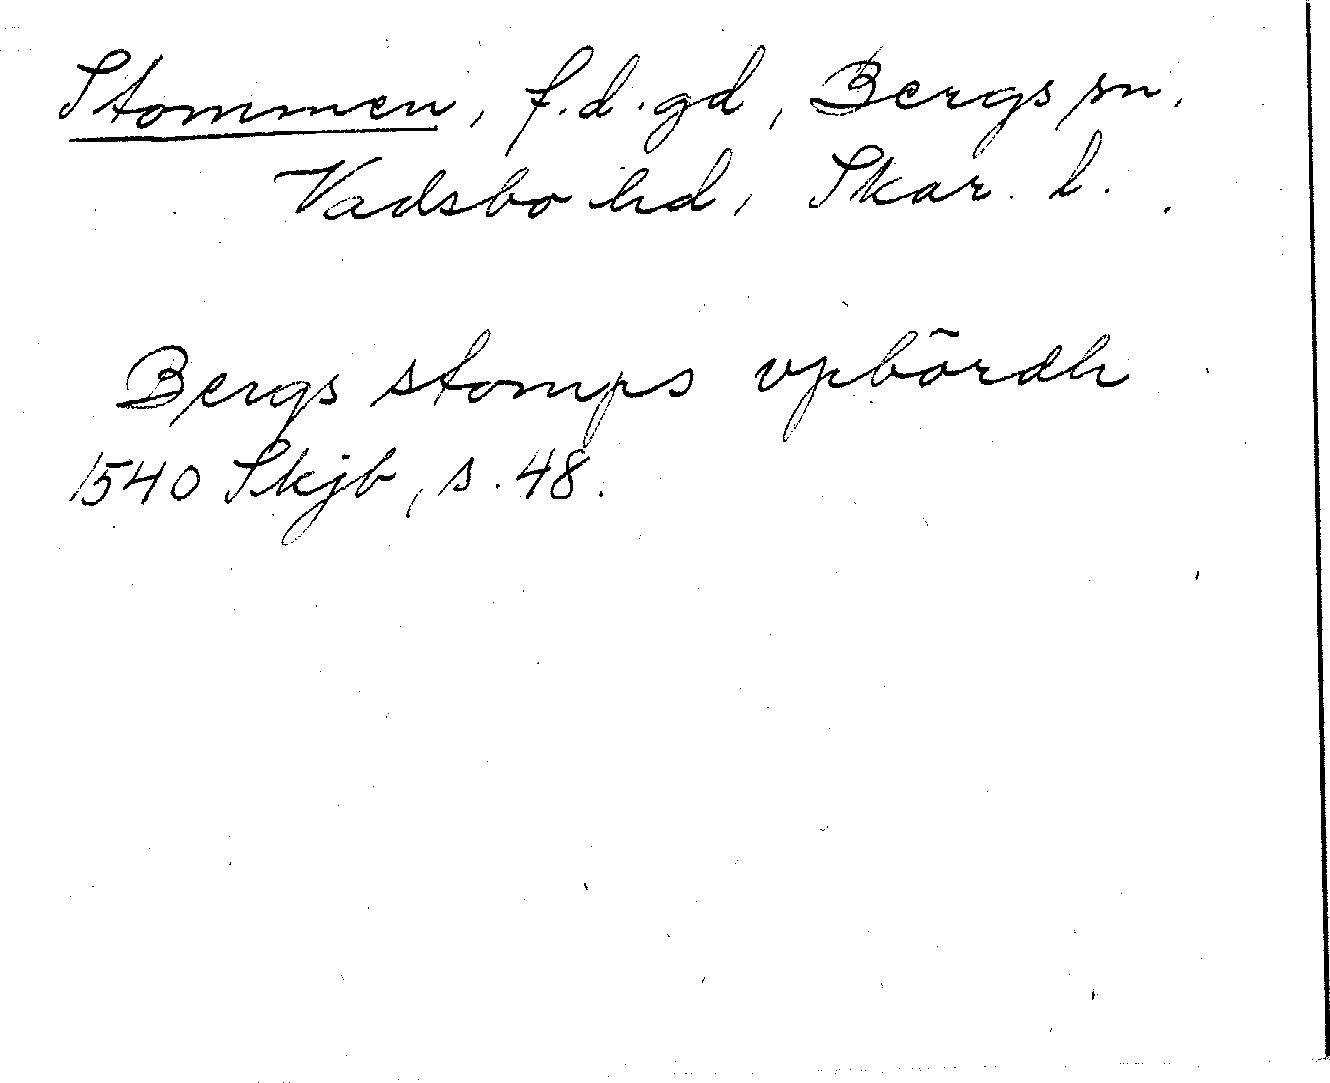 Stommen, f.d. gd, Bergs sn,
Vadsbo hd, Skar. l.
Bergs stomps vpbördh
1540 Skjb, s. 48.